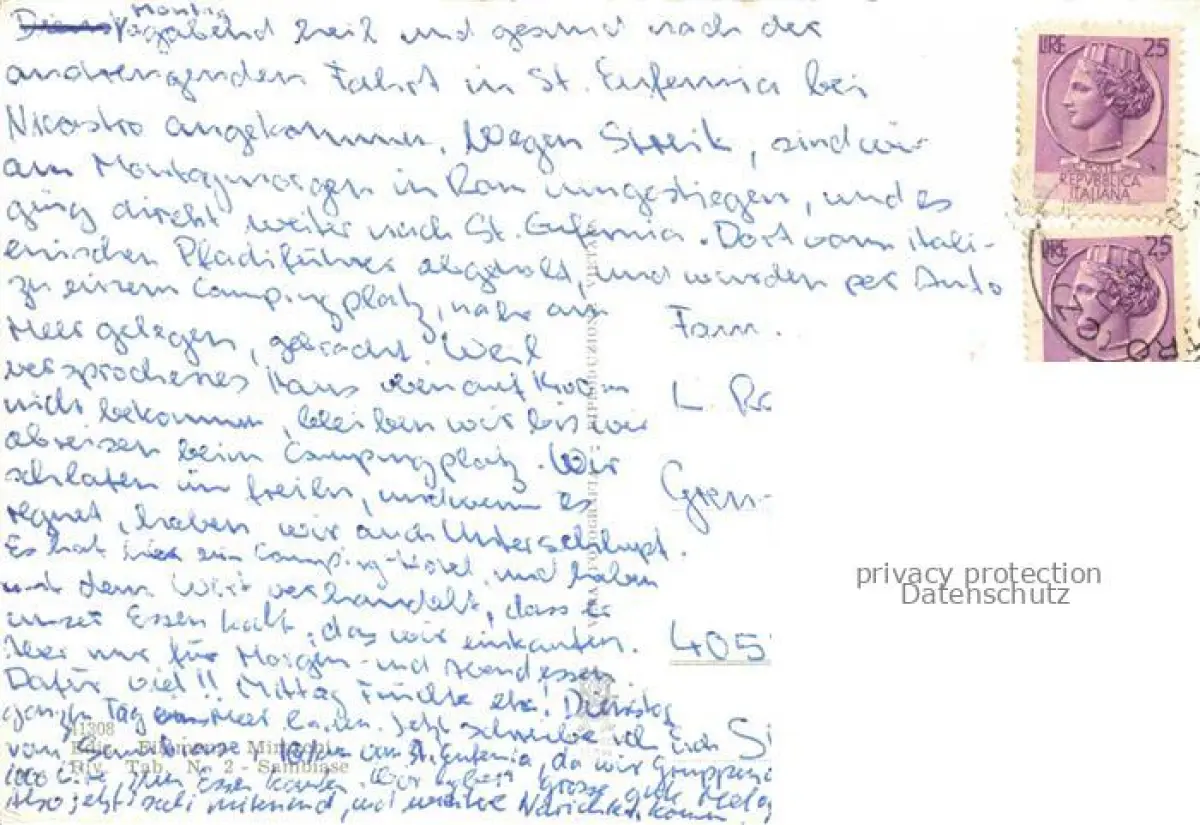 Montag
abend heil und gesund nach der
anstrengenden Fahrt in St. Eufemia bei
Nicastro angekommen. Wegen Streik, sind wir
am Montagmorgen in Rom umgestiegen, und es
ging direkt weiter nach St. Eufemia. Dort vom itali-
enischen Pfadiführer abgeholt, und wurden per Auto
zu einem Campingplatz, nahe am
Meer gelegen, gebracht. Weil
versprochenes Haus oben auf
nicht bekommen, bleiben wir bis wir
abreisen beim Campingplatz. Wir
schlafen im freien, und wenn es
regnet, haben wir auch Unterschlupf.
Es hat hier ein Camping-Hotel, und haben
mit dem Wirt verhandelt, dass er
unser Essen, das wir einkaufen.
Aber nur für Morgen- und Abendessen
Dafür viel!! Mittag Früchte etc! Dienstag
ganzen Tag am Meer baden. Jetzt schreibe ich Euch
von Sambiase, 10 km von St. Eufemia, da wir
zum Essen kaufen. Wir haben grosse gute
Also jetzt und weitere kommen.
Fam.
L. Ro
Gren-
405
Si
LIRE 25
POSTE
REPVBBLICA
ITALIANA
LIRE 25
11308
Riv. Tab. N. 2 - Sambiase
VERA FOTOGRAFIA - RIPRODUZIONE VIETATA
privacy protection
Datenschutz